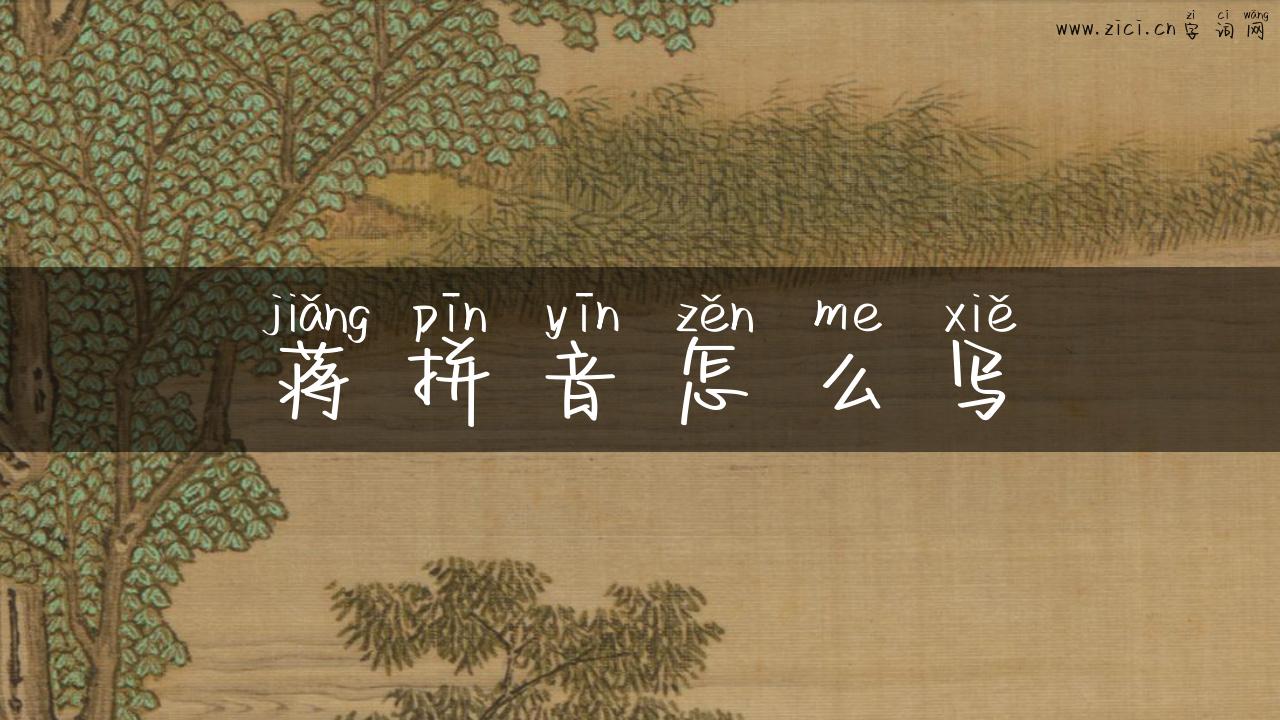 zì cí wǎng
www.zici.cn字词网
jiǎng pīn yīn zěn me xiě
蒋拼音怎么写